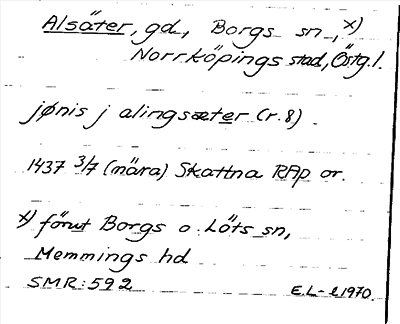 Alsäter, gd, Borgs sn, x)
Norrköpings stad, Östg.l.
jønis j alingsæter (r.8).
1437 3/7 (nära) Skattna RAp or.
x) förut Borgs o. Löts sn,
Memmings hd
SMR:592
E.L-l 1970.